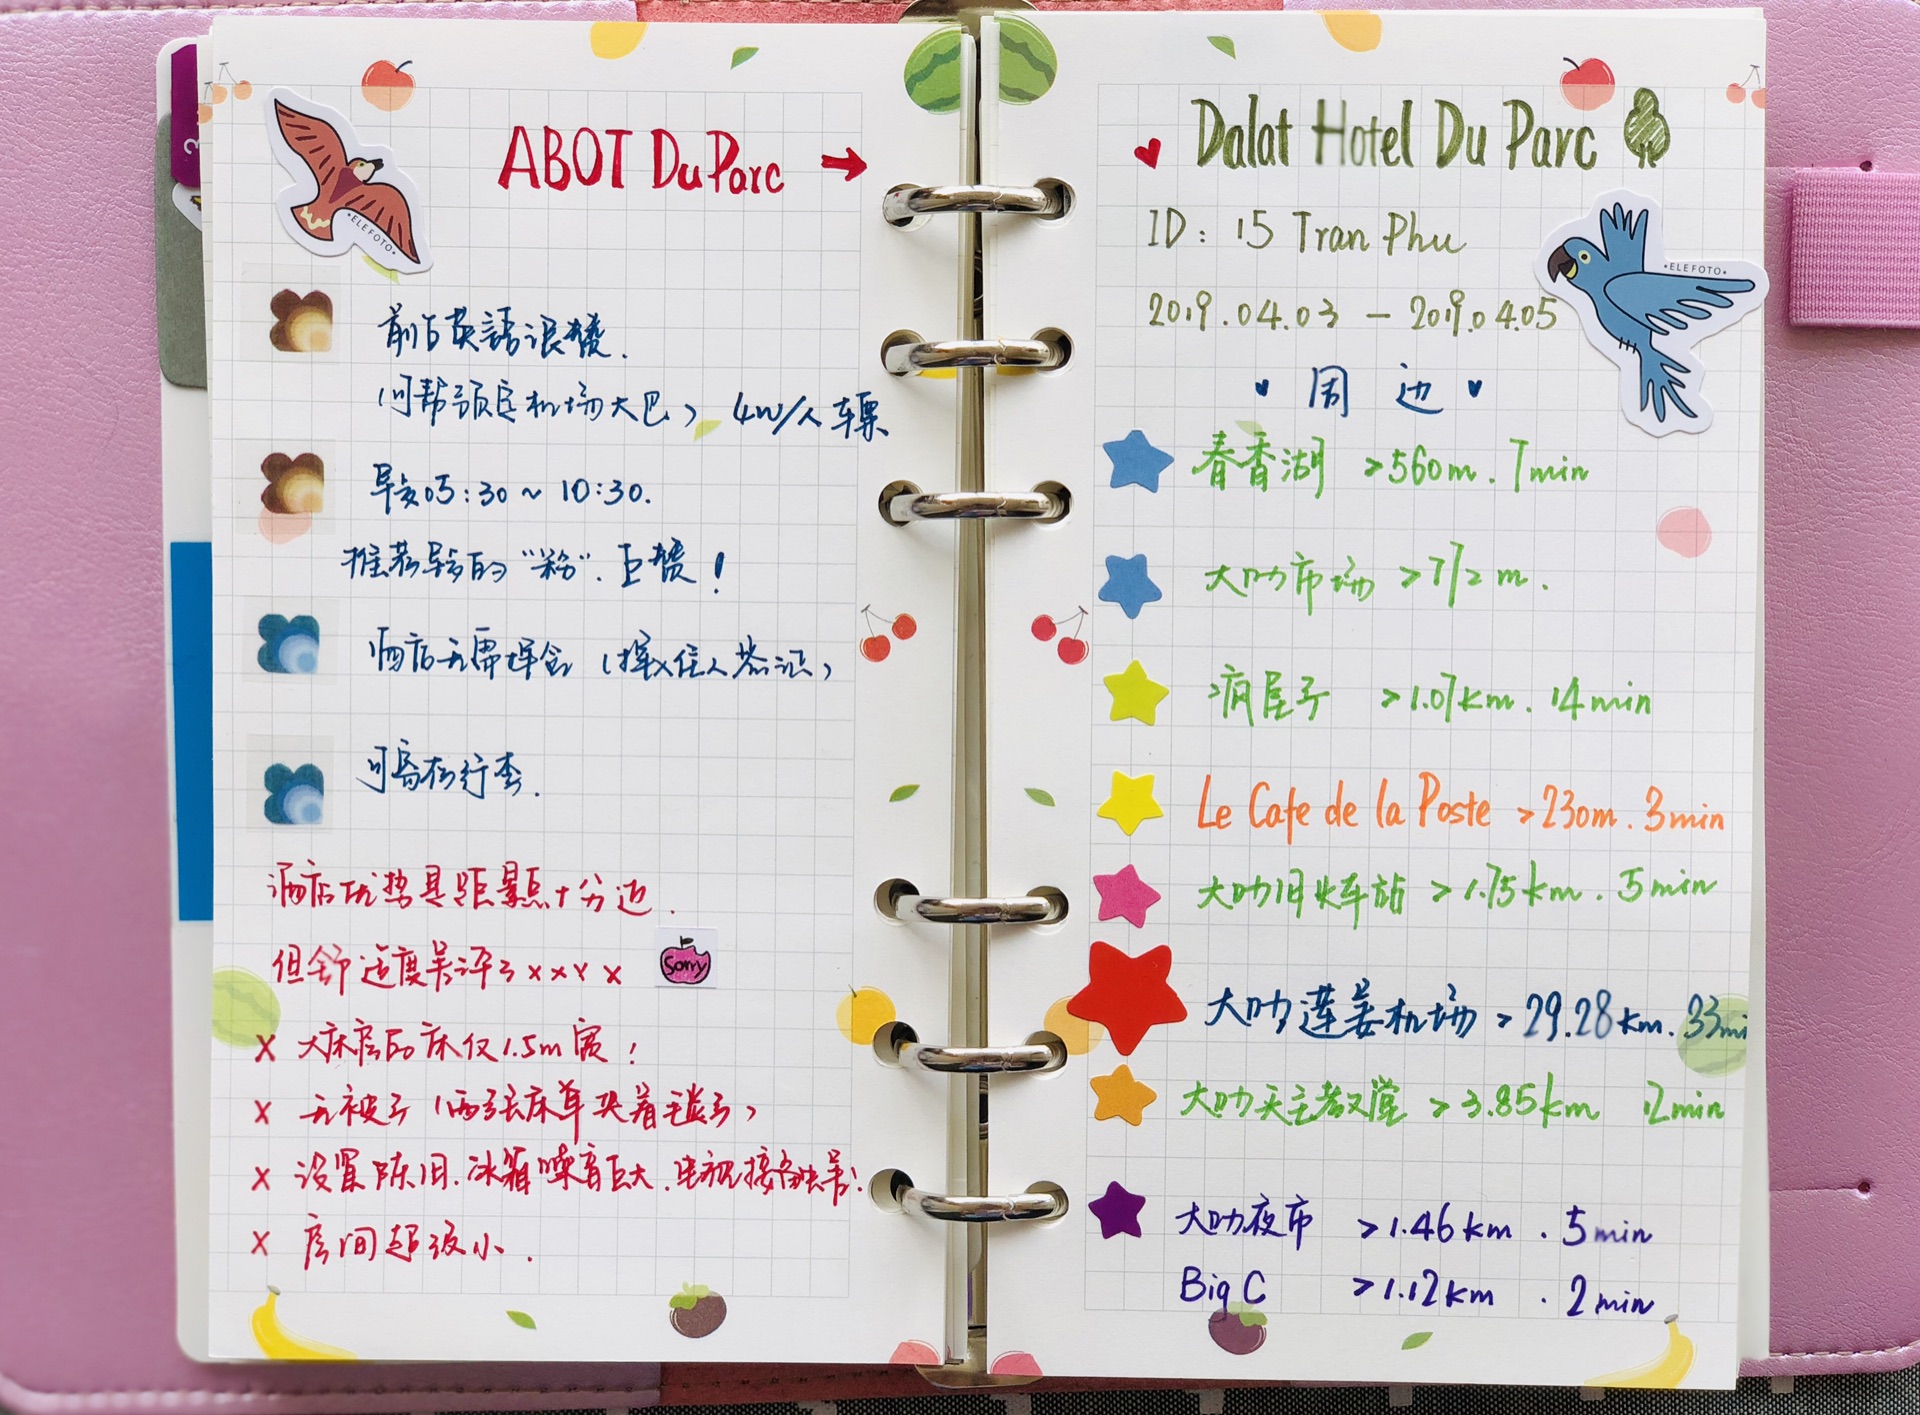 ABOT Du Parc →
ELEFOTO
前台英語很赞.
(可帮预定机场大巴) 4w/人 车票
早餐05:30～10:30.
推荐早餐的“粉”. 巨赞！
酒店无需押金
可寄存行李.
酒店优势是距景点十分近.
但舒适度差评了××××
Sorry
× 大床房的床仅1.5m宽！
× 无被子(两张床单夹着毛毯子)
× 设置陈旧.冰箱噪音巨大.电视接触差！
× 房间超级小.
Dalat Hotel Du Parc
ID: 15 Tran Phu
ELEFOTO
2019.04.03 – 2019.04.05
周 边
春香湖 >560m. 7min
大叻市场 >712m.
疯屋子 >1.07km. 14min
Le Cafe de la Poste >230m. 3min
大叻旧火车站 >1.75km. 5min
大叻莲姜机场 >29.28km. 33mi
大叻天主教堂 >3.85km 12min
大叻夜市 >1.46km . 5min
Big C >1.12km . 2min